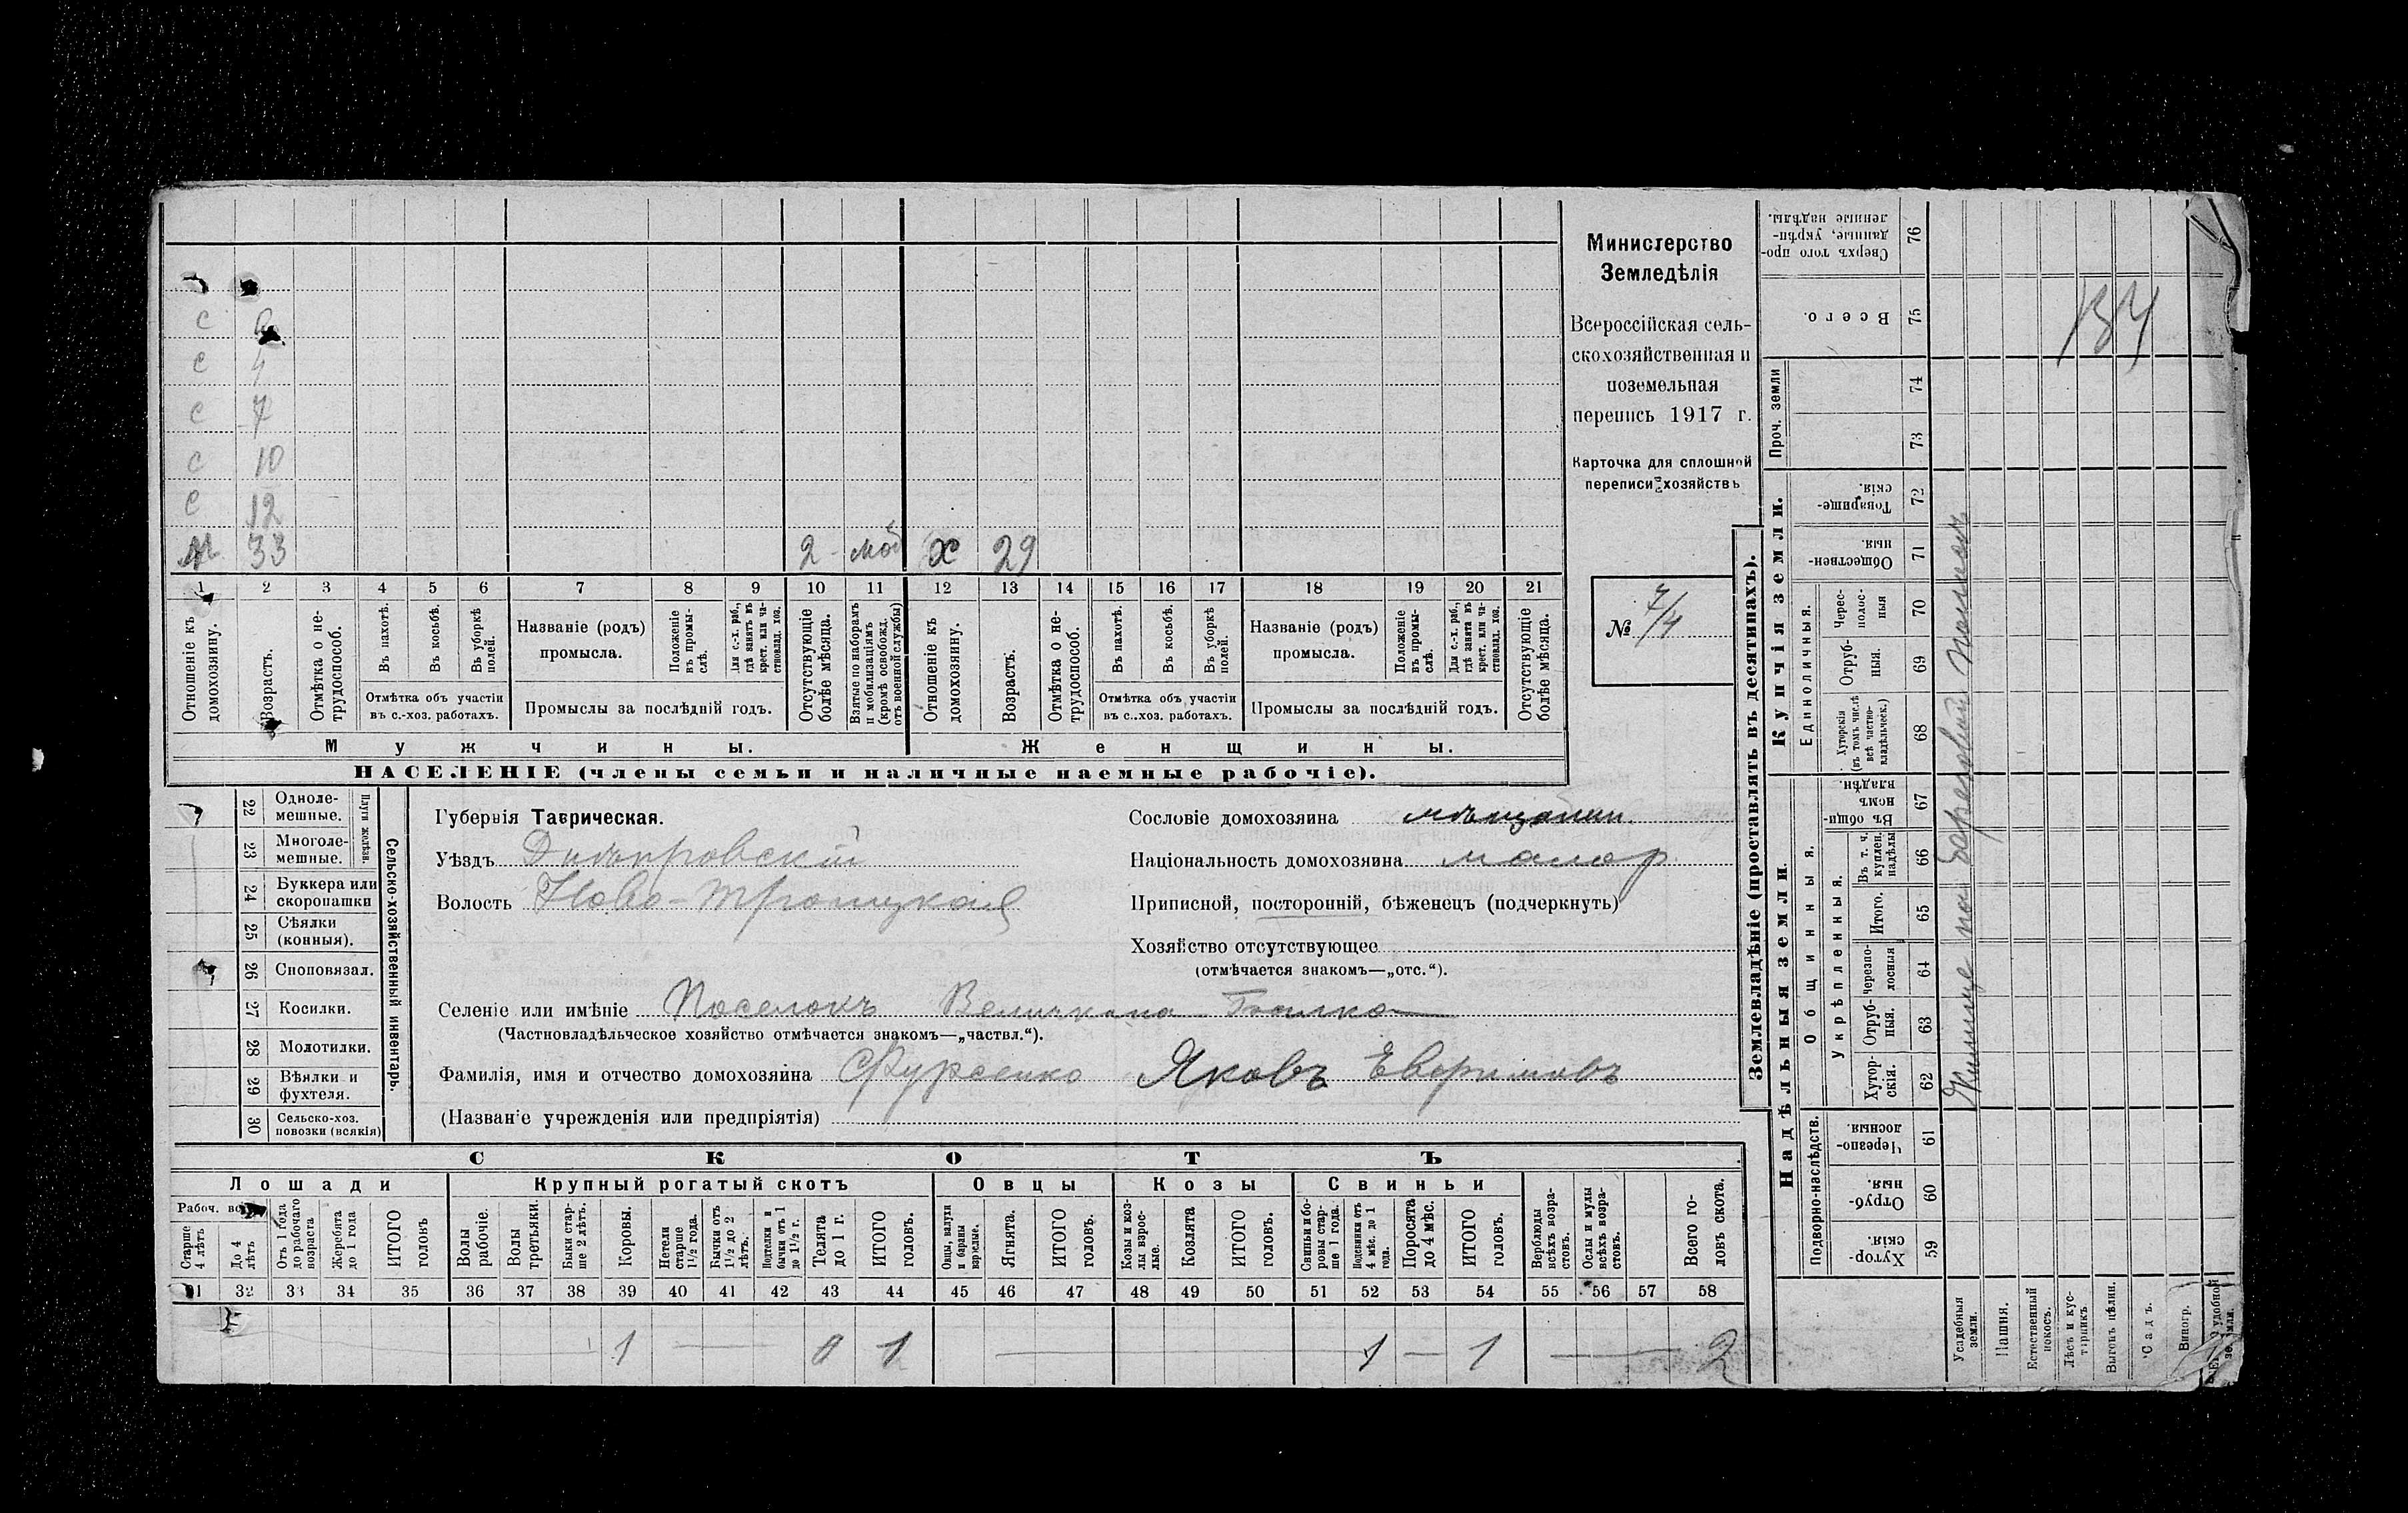 Министерство
Земледѣлія
Всероссійская сель-
скохозяйственная и
поземельная
перепись 1917 г.
Карточка для сплошной
переписи хозяйствъ
№ 7/4
с
с 4
с 7
с 10
с 12
33 2 моб х 29
1 2 3 4 5 6 7 8 9 10 11 12 13 14 15 16 17 18 19 20 21
Отношеніе къ домохозяину.
Возрастъ.
Отмѣтка о не-трудоспособ.
Въ пахотѣ.
Въ косьбѣ.
Въ уборкѣ полей.
Отмѣтка объ участіи
въ с.-хоз. работахъ.
Названіе (родъ)
промысла.
Положеніе въ промы-слѣ.
Для с.-х. раб., гдѣ занятъ въ крест. или ча-ствовлад. хоз.
Промыслы за послѣдній годъ.
Отсутствующіе болѣе мѣсяца.
Взятые по наборамъ и мобилизаціямъ (кромѣ освобожд. отъ военной службы)
Отношеніе къ домохозяину.
Возрастъ.
Отмѣтка о не-трудоспособ.
Въ пахотѣ.
Въ косьбѣ.
Въ уборкѣ полей.
Отмѣтка объ участіи
въ с..хоз. работахъ.
Названіе (родъ)
промысла.
Положеніе въ промы-слѣ.
Для с.-х. раб., гдѣ занята въ крест. или ча-ствовлад. хоз.
Промыслы за послѣдній годъ.
Отсутствующіе болѣе мѣсяца.
Мужчины. Женщины.
НАСЕЛЕНІЕ (члены семьи и наличные наемные рабочіе).
22 Одноле-мешные.
23 Многоле-мешные.
Плуги желѣзн.
24 Буккера или скоропашки
25 Сѣялки (конныя).
26 Сноповязал.
27 Косилки.
28 Молотилки.
29 Вѣялки и фухтеля.
30 Сельско-хоз. повозки (всякія)
Сельско-хозяйственный инвентарь.
Губернія Таврическая.
Уѣздъ Днѣпровскій
Волость Ново-Троицкая
Сословіе домохозяина мѣщанин.
Національность домохозяина малор.
Приписной, посторонній, бѣженецъ (подчеркнуть)
Хозяйство отсутствующее
(отмѣчается знакомъ—„отс.“).
Селеніе или имѣніе Поселокъ Балка
(Частновладѣльческое хозяйство отмѣчается знакомъ—„частвл.“).
Фамилія, имя и отчество домохозяина Фурсенко Яковъ Евфимовъ
(Названіе учрежденія или предпріятія)
СКОТЪ
Лошади Крупный рогатый скотъ Овцы Козы Свиньи
Старше 4 лѣтъ
До 4 лѣтъ
Отъ 1 года до рабочаго возраста
Жеребята до 1 года
ИТОГО головъ
Волы рабочіе.
Волы третьяки.
Быки стар-ше 2 лѣтъ.
Коровы.
Нетели старше 1½ года.
Бычки отъ 1½ до 2 лѣтъ.
Подтелки и бычки отъ 1 до 1½ г.
Телята до 1 г.
ИТОГО головъ.
Овцы, валухи и бараны взрослые.
Ягнята.
ИТОГО головъ.
Козы и коз-лы взрос-лые.
Козлята
ИТОГО головъ.
Свиньи и бо-ровы стар-ше 1 года.
Подсвинки отъ 4 мѣс. до 1 года.
Поросята до 4 мѣс.
ИТОГО головъ.
Верблюды всѣхъ возра-стовъ.
Ослы и мулы всѣхъ возра-стовъ.
Всего го-ловъ скота.
31 32 33 34 35 36 37 38 39 40 41 42 43 44 45 46 47 48 49 50 51 52 53 54 55 56 57 58
1 0 1 1 — 1 — 2
Землевладѣніе (проставлять въ десятинахъ).
Надѣльныя земли.
Купчія земли.
Проч. земли
Подворно-наслѣдств.
Общинныя.
Укрѣпленныя.
Единоличныя.
Хутор-скія. 59
Отруб-ныя. 60
Черезпо-лосныя. 61
Хутор-скія. 62
Отруб-ныя. 63
Черезпо-лосныя 64
Итого. 65
Въ т. ч. куплен. надѣлы 66
Въ общин-номъ владѣн. 67
Хуторскія (въ томъ числѣ всѣ частно-владѣльческ.) 68
Отруб-ныя. 69
Черес-полос-ныя 70
Обществен-ныя. 71
Товарище-скія. 72
73
74
Всего. 75
Сверхъ того про-данные, укрѣп-ленные надѣлы. 76
134
Усадебныя земли.
Пашня.
Естественный покосъ.
Лѣсъ и кус-тарникъ
Выгонъ цѣлин.
Садъ.
Виногр.